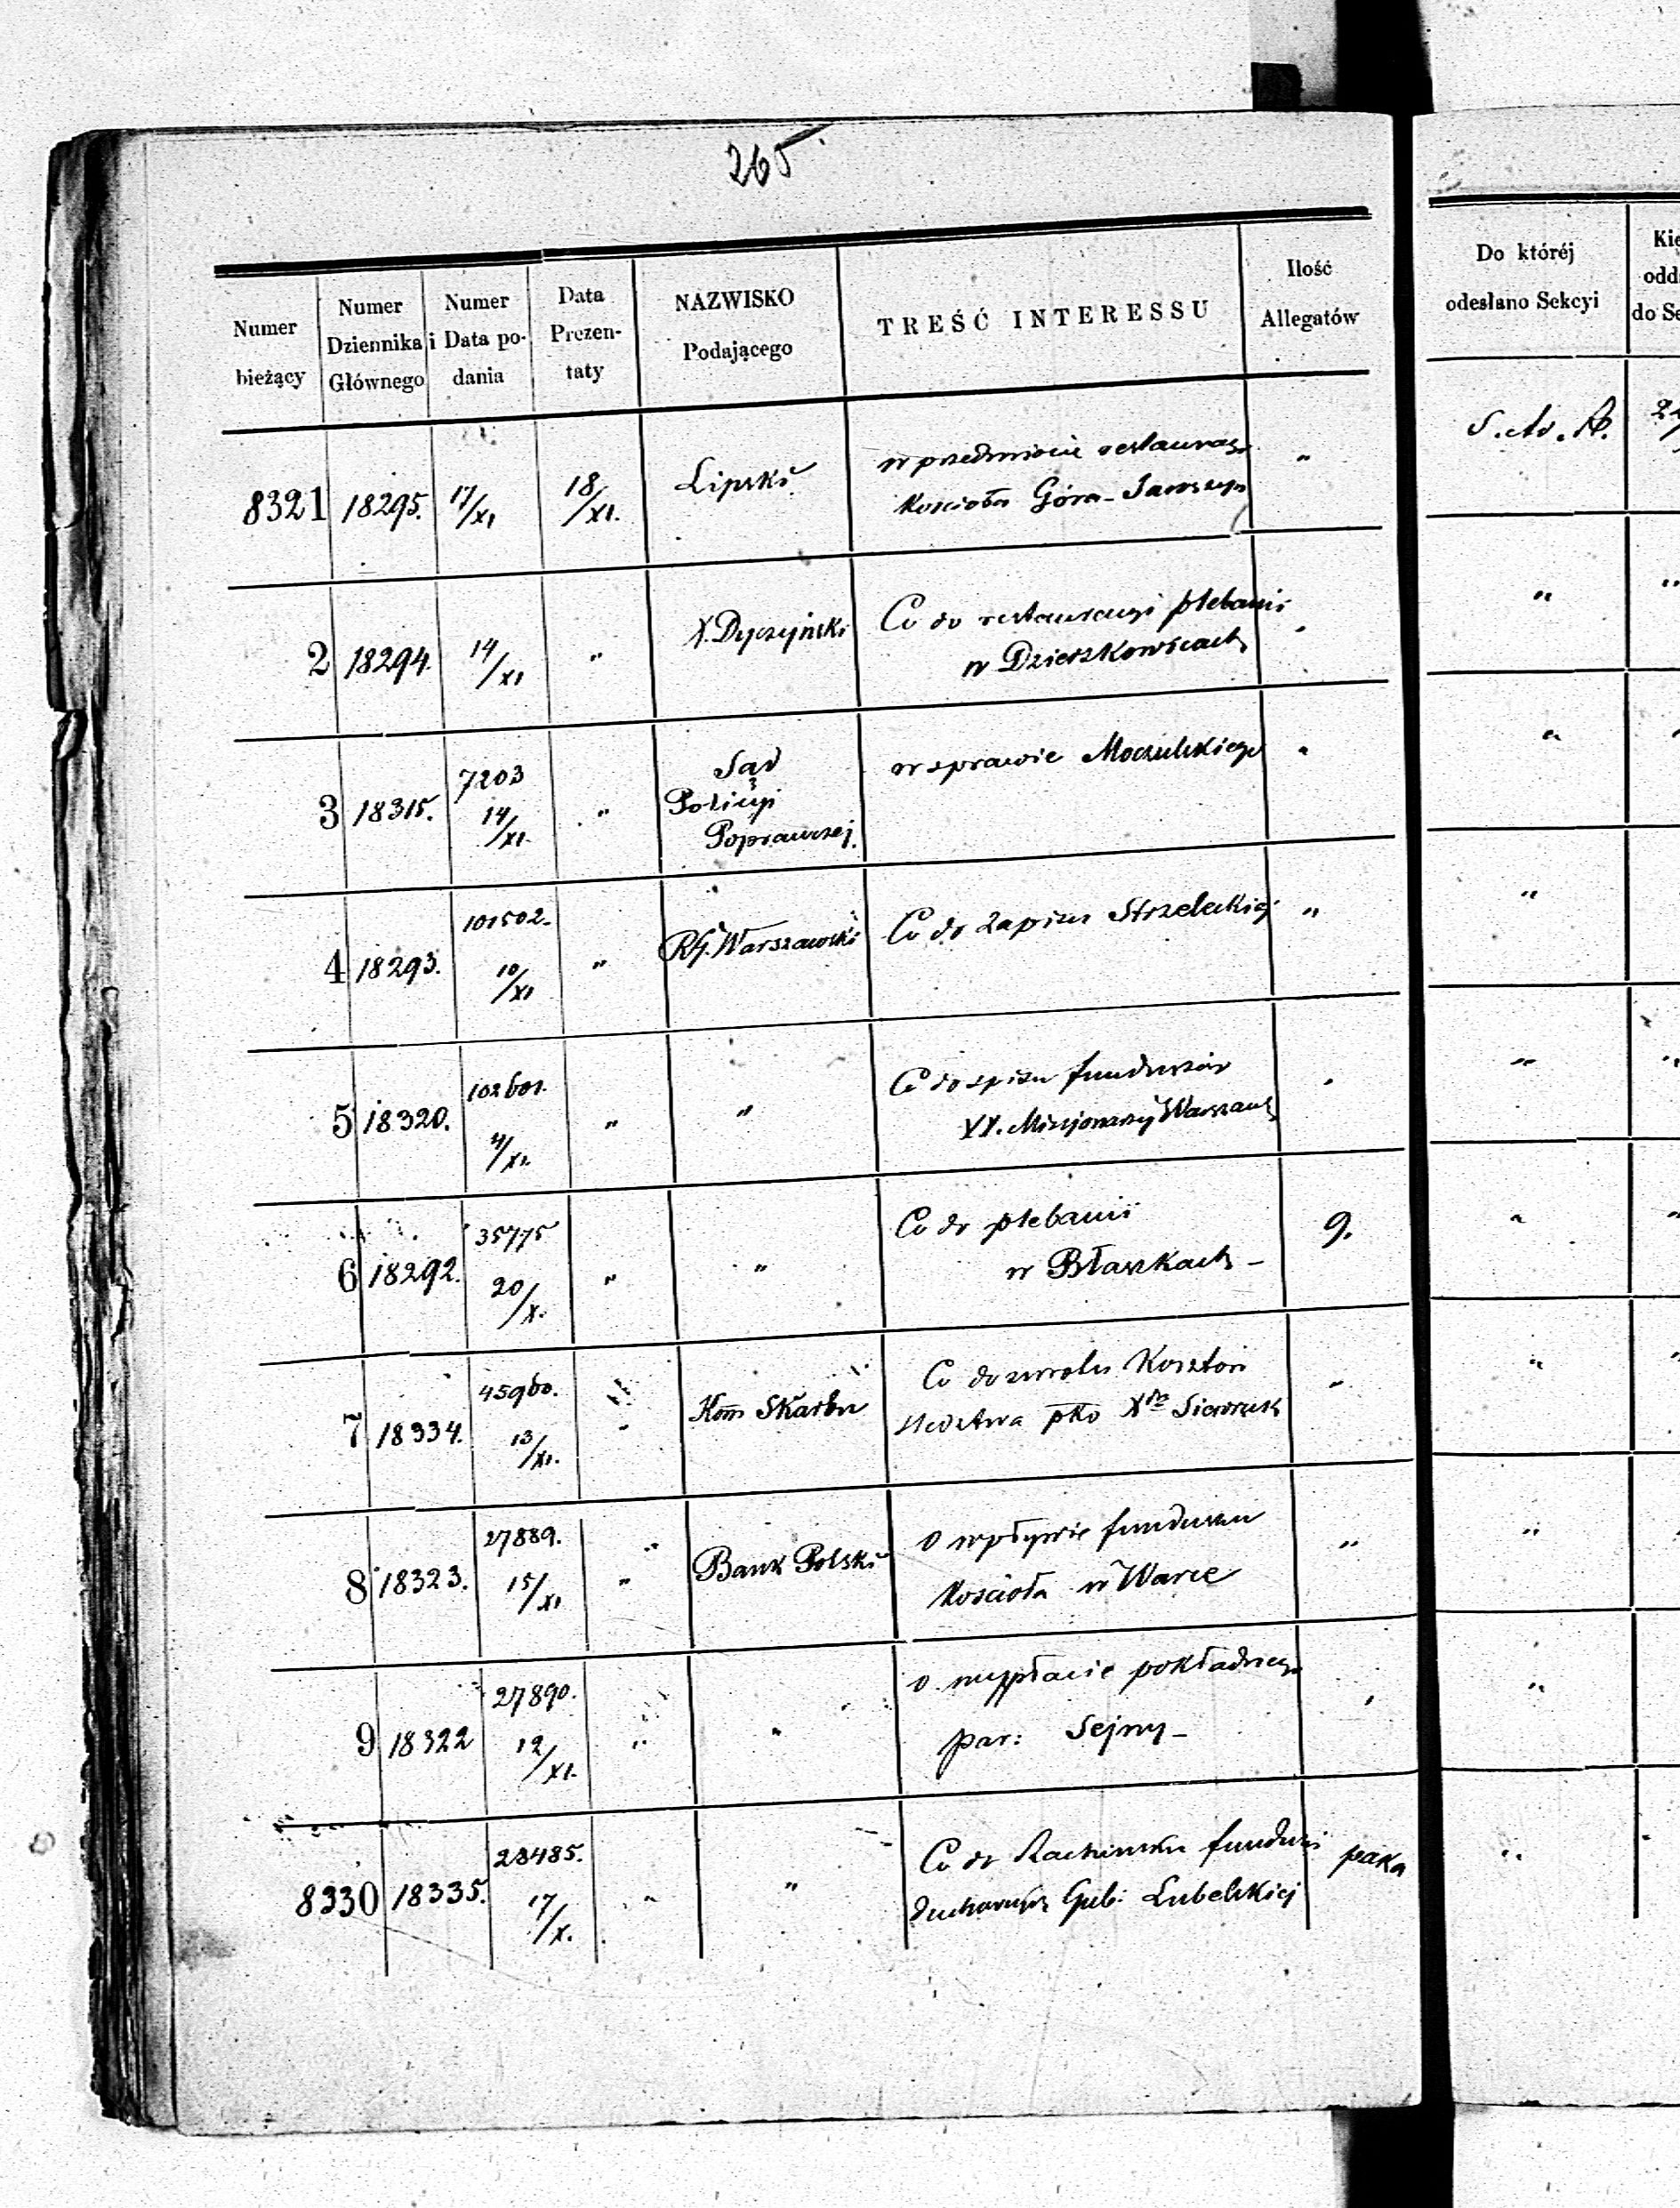 265
Numer bieżący
Numer Dziennika Głównego
Numer i Data podania
Data Prezentaty
NAZWISKO Podającego
TREŚĆ INTERESSU
Ilość Allegatów
Do któréj odesłano Sekcyi
8321 18295. 17/XI 18/XI. Lipski w przedmiocie restauracyi "
Kościoła Góra-
2 18294. 14/XI " X. Dyczyński Co do restauracyi plebanii "
w Dzierzkowicach
3 18315. 7203 14/XI. " Sąd Policyi Poprawczej. w sprawie Moczulskiego "
4 18293. 101502. 10/XI " R.G. Warszawski Co do zapisu Strzeleckiej "
5 18320. 102601. 4/XI. " " Co do spisu funduszów
XX. Misjonarzy Warszaws
6 18292. 35775 20/X. " " Co do plebanii 9.
w Błaszkach –
7 18334. 45960. 13/XI. " Kom Skarbu Co do zwrotu Kosztów "
śledztwa pko Xdo
8 18323. 27889. 15/XI " Bank Polski O wpływie funduszu "
Kościoła w Warce
9 18322 27890. 12/XI. " " o wypłacie pokładnego
par: Sejny –
8330 18335. 28485. 17/X. " " Co do Rachunku funduszów paka
duchownych Gub: Lubelskiej